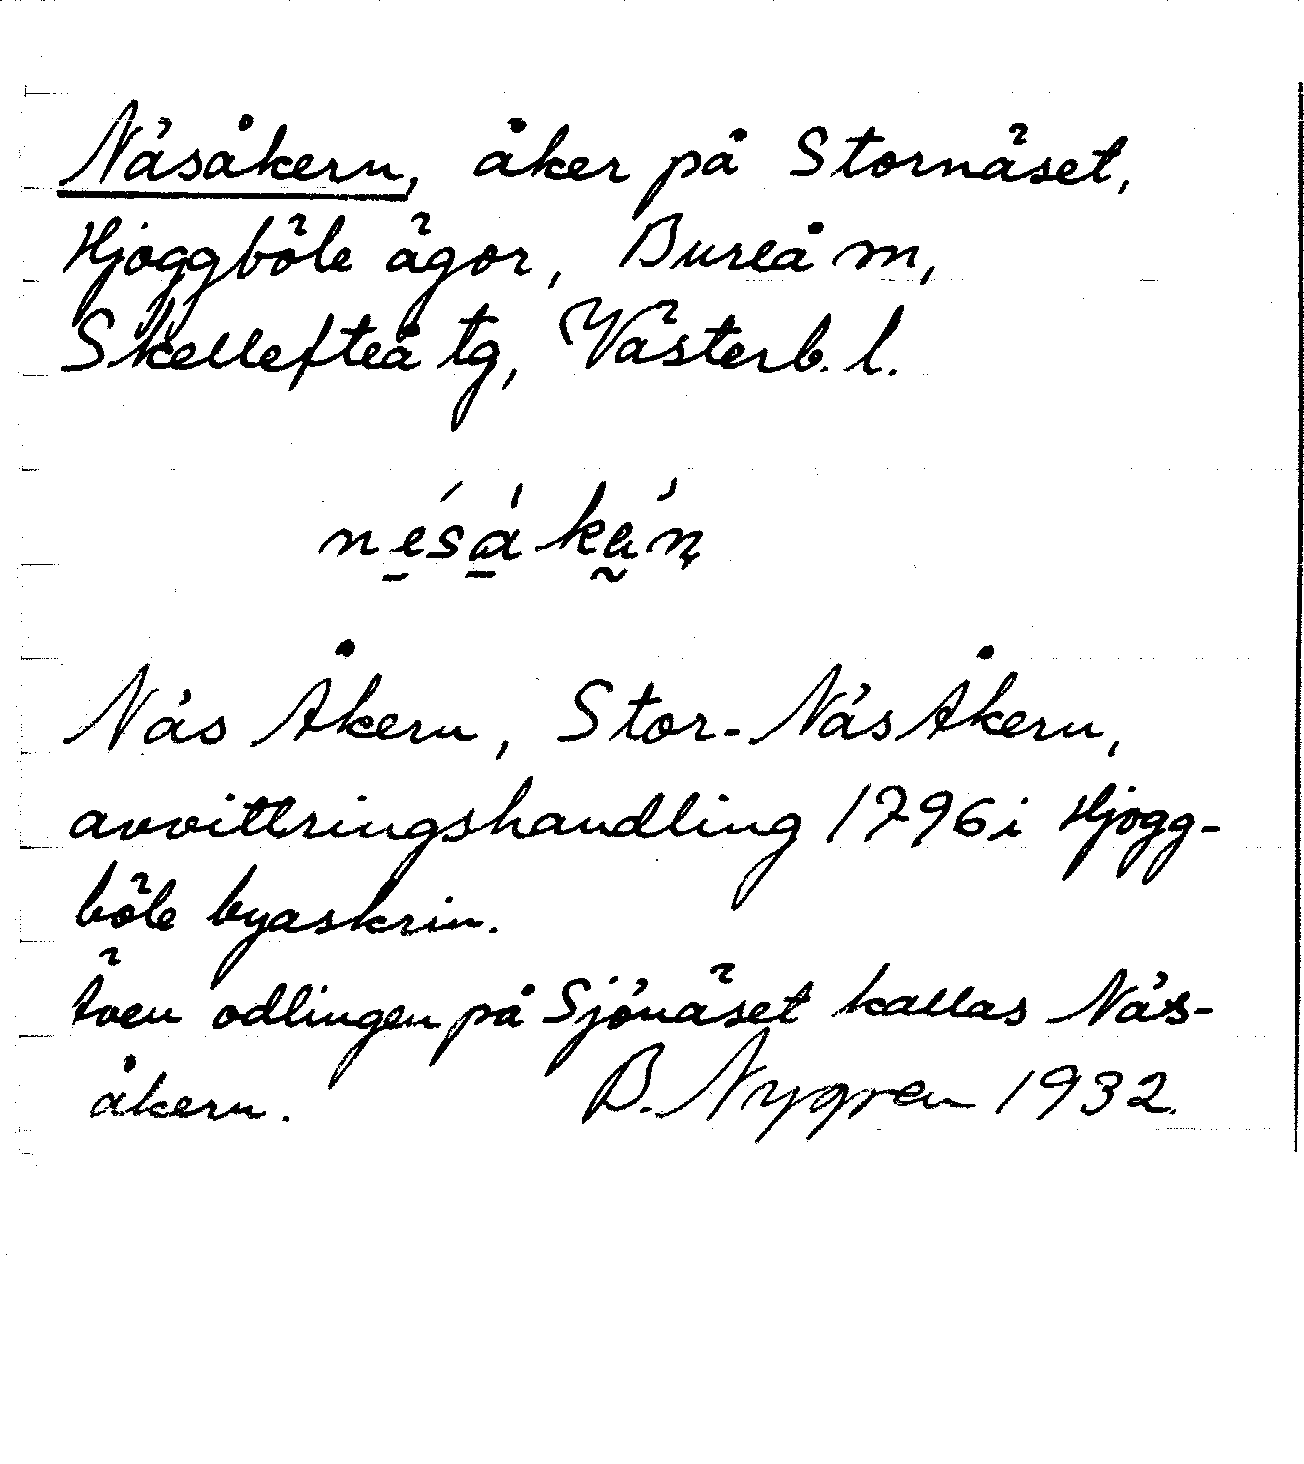 Näsåkern, åker på Stornäset,
Hjoggböle ägor, Bureå m,
Skellefteå tg, Västerb. l.
Näs Åkern, Stor-Näs Åkern,
avvittringshandling 1796 i Hjogg-
böle byaskrin.
Även odlingen på Sjönäset kallas Näs-
åkern. B. Nygren 1932.